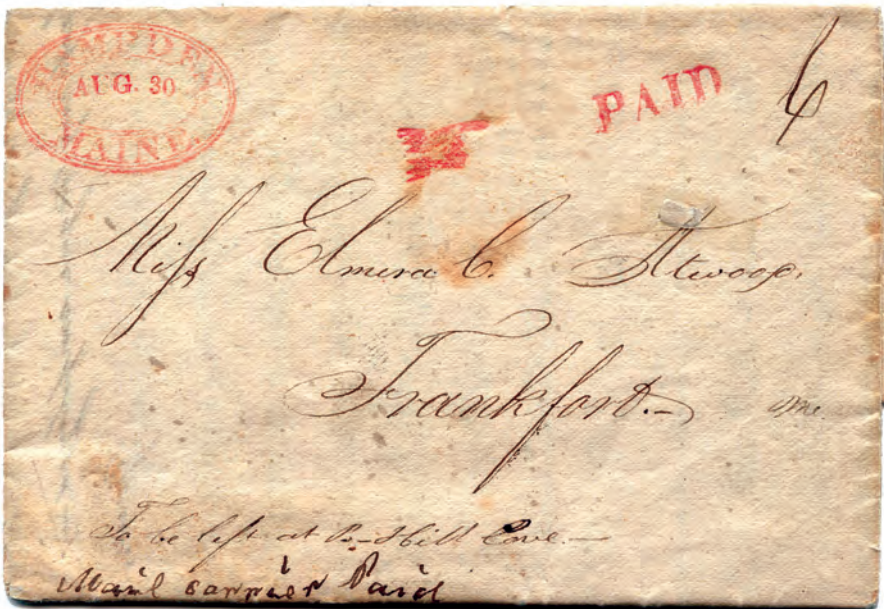 HAMPDEN
AUG. 30
MAINE.
PAID
6
Miss Elmira C. Atwood.
Frankfort.
Me.
To be left at B-Hill Cove.
Mail carrier Paid